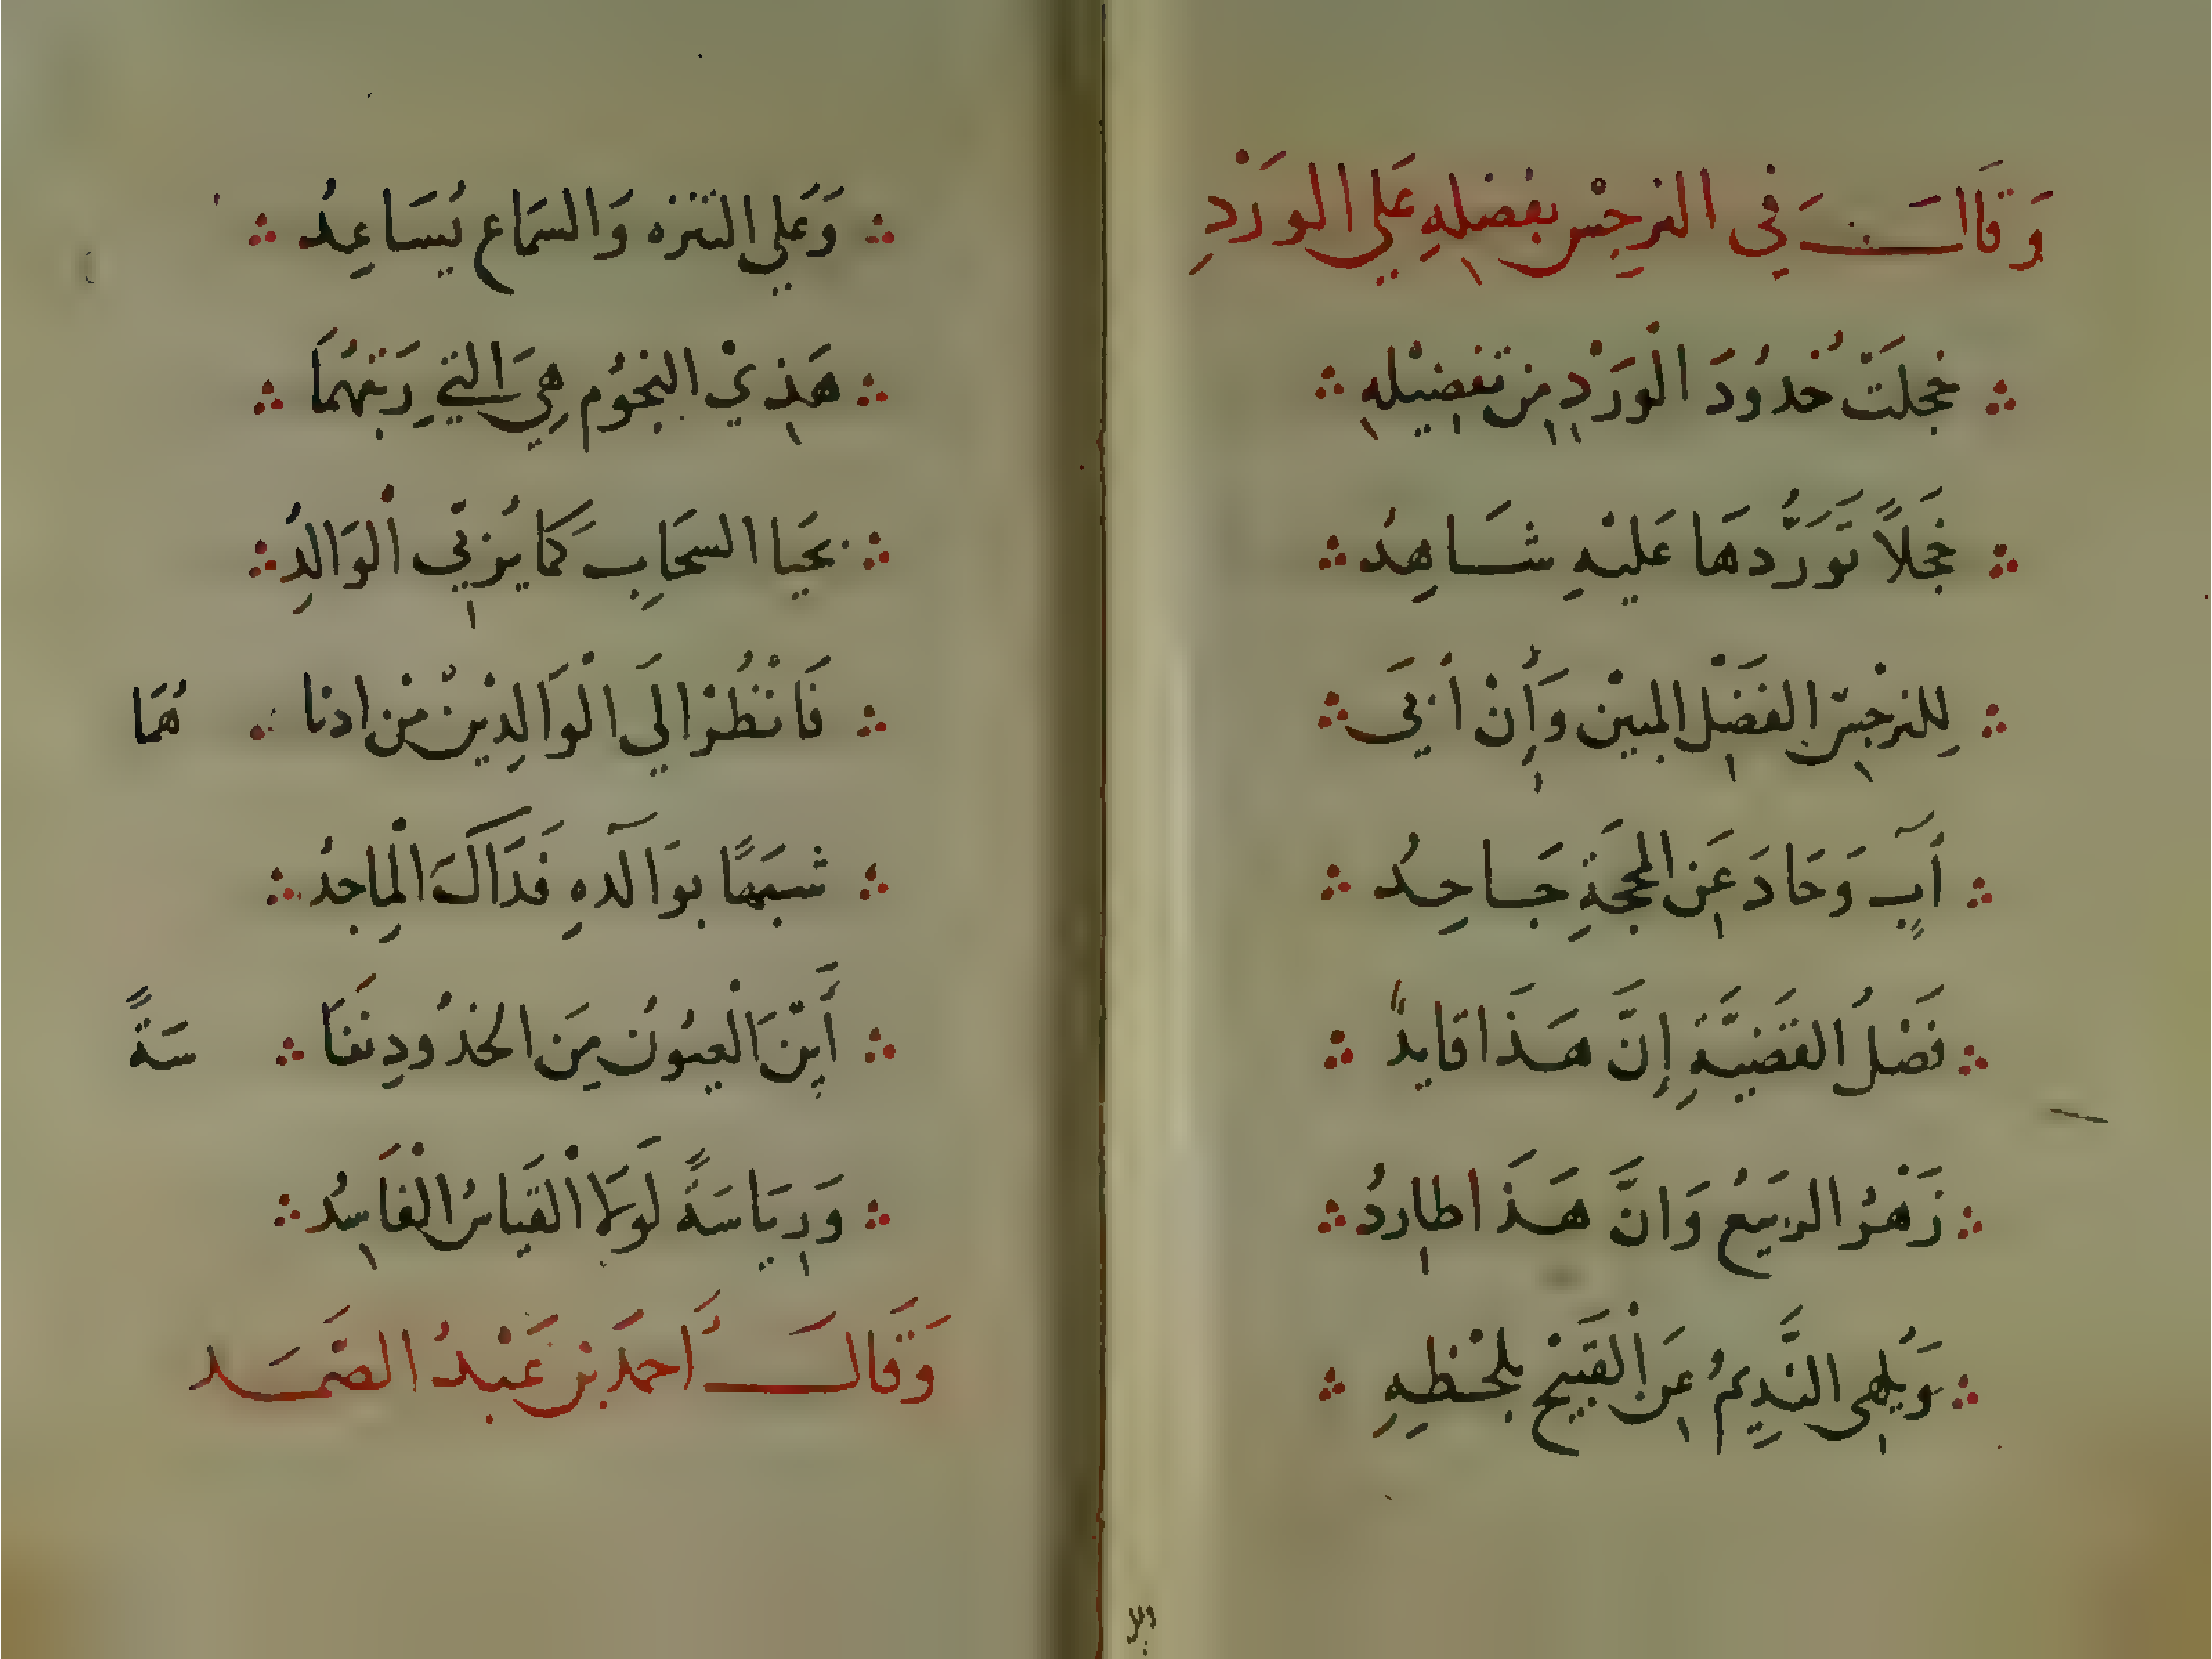 وَقَالَ فِي النرجِسْ بفضلهِ عَلي الوَرْدِ
خجلَتْ خُدُودَ الْوَرْدِ مِن تفضِيْلهِ
خَجَلاً تَوَرُّدهَا عَليْهِ شَاهِدُ
لِلنرجْسِ الفَضْلِ المبيْن وَإِنْ أَبَى
أَبٍ وَحَادَ عَنِ المحَجَّةِ جَاحِدُ
فَصْلُ القَضيَّةِ إِنَّ هَذَا قايدٌ
زَهْرُ الربَيعُ وَانَّ هَذَا طارِدُ
وَيُلهِى النَّدِيمُ عَنِ الْقَبَيْحِ بلحْظهِ
وَعَلي التنزه وَالسَمَاع يُسَاعِدُ
هَذِيْ النجُوُم هِيَ التِي رَبَتهُمَا
بحَيا السحَابِ كَما يُربي الْوَالدِ
فَانْظُرْ الِي الْوَالِدَيْنِ مَنْ ادنا هُمَا
شبَهًا بوَالدهِ فَذَاكَ الْمِاجدُ
أَيْنَ الْعُيُونُ مِنَ الخدُودِ نَفَا سَةً
وَرِيَاسَةً لَوْلَا الْقَياسُ الْفَاسِدُ
وَقَالَ أَحمَدَ بن عَبْدُ الصَّمَد